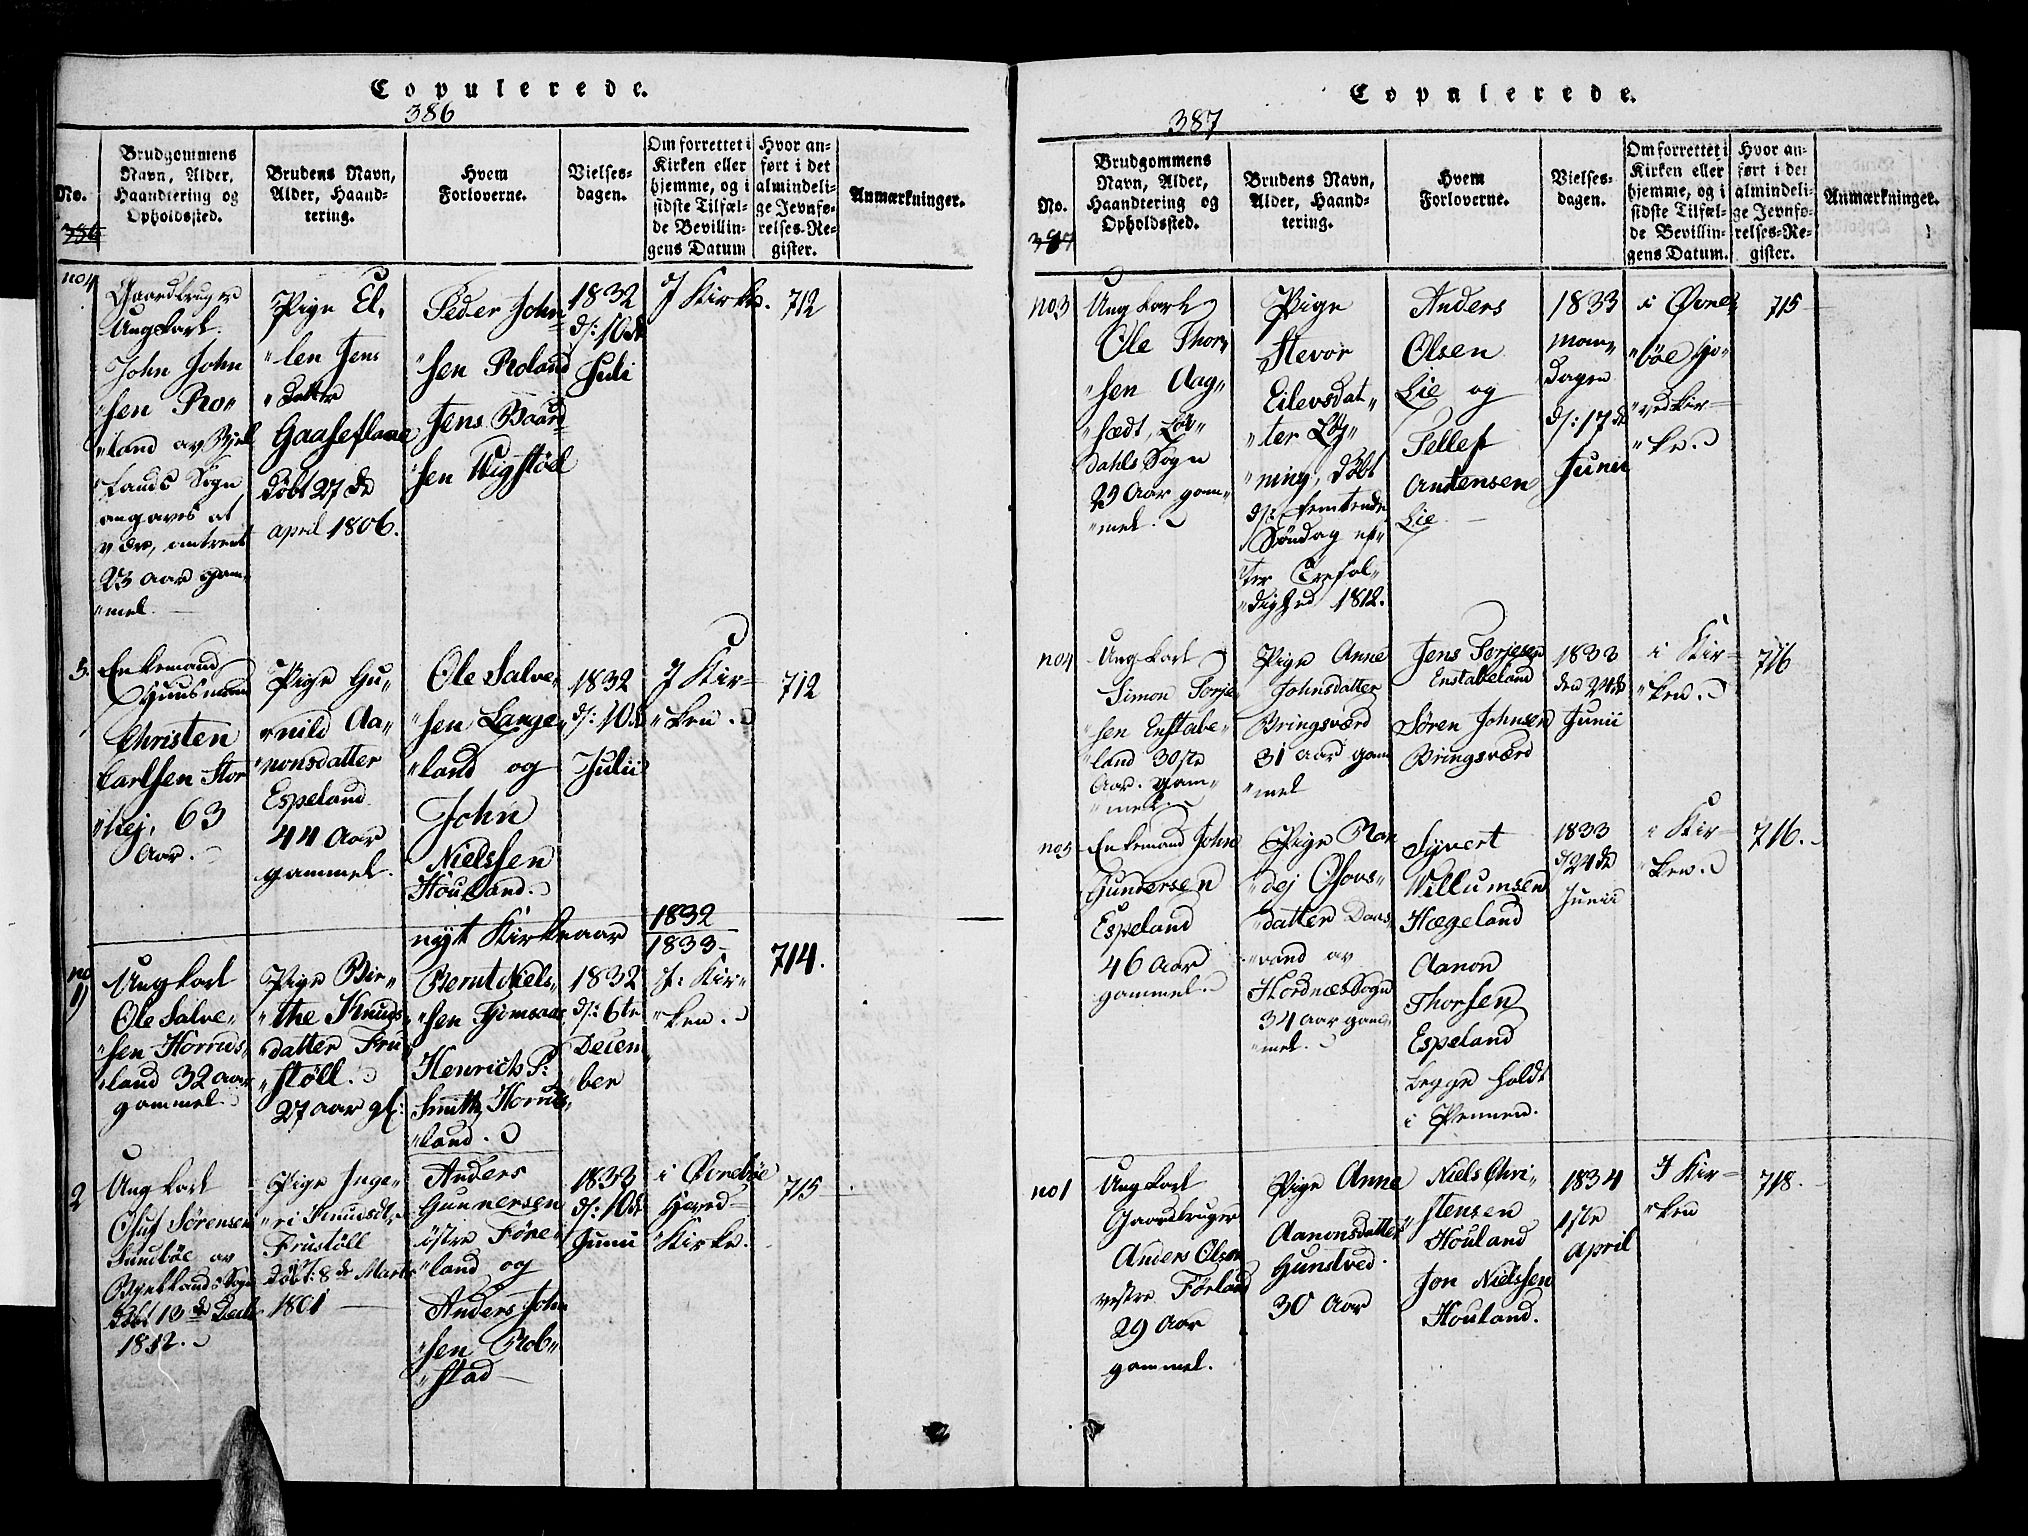 Copulerede.
386
No.
386
Brudgommens
Navn, Alder,
Haandtering og
Opholdssted.
Brudens Navn,
Alder, Haand-
tering.
Hvem
Forloverne.
Vielses-
dagen.
Om forrettet i
Kirken eller
hjemme, og i
sidste Tilfæl-
de Bevillin-
gens Datum
Hvor an-
ført i det
almindeli-
ge Jevnfø-
relses-Re-
gister.
Anmærkninger.
no4
Gaardbruger
Ungkarl
John John
"sen Ro"
"land av Biel
"lands Sogn
angaves at
være, omtrent
23 Aar gam-
"mel.
Pige El,
"len Jens
"datter
Gaaseflaae
döbt 27 de
april 1806.
Peder John
"sen Roland
Jens Baard
sen Uigstöel
1832
d/: 10de
Juli
J Kirke.
712
5.
Enkemand
Huusmand
Christen
Carlsen Stor
"hej, 63
Aar.
Pige Gu"
"nild Aa"
"nonsdatter
Espeland
44 Aar
gammel.
Ole Salve"
"sen Lange"
"land og
John
Nielssen
Houland.
1832
d/: 10de
Julii
J Kir-
"ken.
712
nyt Kirkeaar
1832
1833-
no
1)
Ungkarl
Ole Salve"
"sen Horrus"
"land 32 aar
gammel.
Pige Bir"
"the Knuds"
"datter Fru"
"stöll.
27 aar gl:
Bernt Niels"
"sen Fjemsaae
Henrich P:
Smith, Horrus"
"land.
1832
d/: 6te
Decem
"ber
J: Kir-
"ken.
714.
2
Ungkarl
Oluf Sörensen
Sundböe av
Bjellands Sogn
döbt 13de Decbr
1812.
Pige Inge"
"ri Knudsdtr
Frustöll
döbt: 8de Marts
1801
Anders
Gunnersen
östre Före"
"land og
Anders John
"sen Rob"
"stad
1833
d/: 10de
Junii
i Øvreböe
Hoved-
Kirke.
715
Copulerede.
387
No.
387
Brudgommens
Navn, Alder,
Haandtering og
Opholdssted.
Brudens Navn,
Alder, Haand-
tering.
Hvem
Forloverne.
Vielses-
dagen.
Om forrettet i
Kirken eller
hjemme, og i
sidste Tilfæl-
de Bevillin-
gens Datum.
Hvor an-
ført i det
almindeli-
ge Jevnfø-
relses-Re-
gister.
Anmærkninger.
no3
Ungkarl
Ole Thor"
"sen Aag"
"sædt,
dahls Sogn
29 Aar gam"
"mel.
Pige
Stevor
Eilevsdat"
"ter
"ning, döbt
d/: femtende
Söndag ef"
"ter Trefol"
"dighed 1812.
Anders
Olsen
Lie og
Tellef
Andensen
Lie
1833
Man"
dagen
d/: 17de
Junii
i Øvre"
"böe Ho"
"vedkir-
"ke.
715
no4
Ungkarl
Simon Torje
"sen Enstabe"
"land 30ste
Aar gam"
"mel.
Pige Anne
Johnsdatter
Bringsværd
31 aar gam
"mel
Jens Torjesen
Enstabeland
Sören Johnsen
Bringsværd
1833
den 24de
Junii
i Kir-
"ken.
716
no5
Enkemand John
Gundersen
Espeland
46 Aar
gammel.
Pige Ron
"dej Osovs"
"datter Daas
"vand av
Hordnæs Sogn
34 aar gam"
"mel.
Syvert
Willumsen
Hægeland
Aanon
Thorsen
Espeland
begge holdt
i Pennen.
1833
d/24de
Junii
i Kir-
"ken.
716.
no1
Ungkarl
Gaardbruger
Anders Olsen
vestre Förland
29 Aar
gammel.
Pige Anne
Aanonsdatter
Gunstved.
30 Aar
Niels Chri"
"stensen
Houland
Jon Nielssen
Houland.
1834
1ste
April
J Kir-
"ken
718.